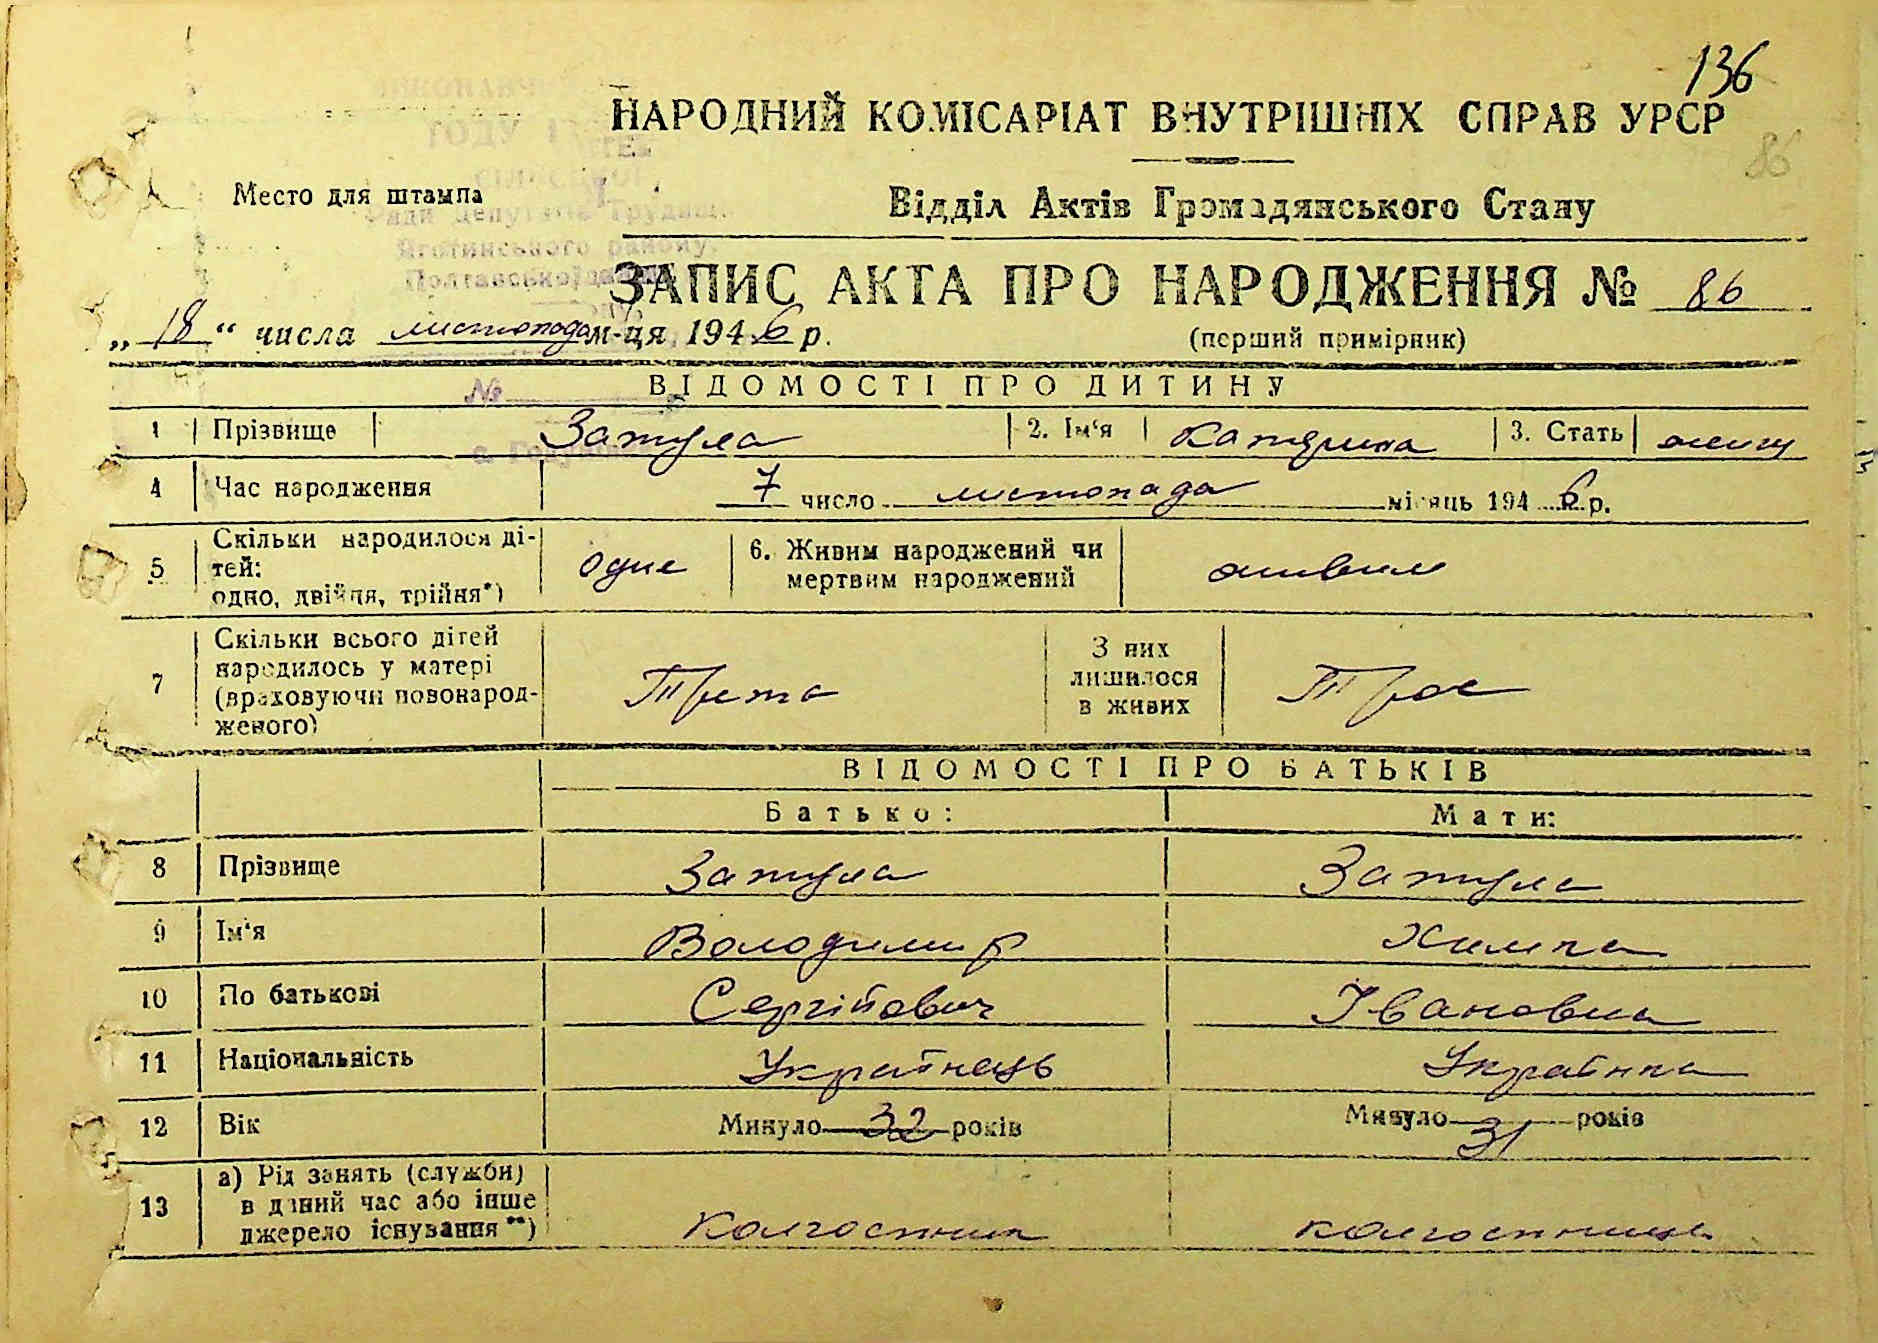 136
НАРОДНИЙ КОМІСАРІАТ ВНУТРІШНІХ СПРАВ УРСР
86
Место для штампа
Відділ Актів Громадянського Стану
Ради депутатів Трудящ.
Яготинського району,
Полтавської
ЗАПИС АКТА ПРО НАРОДЖЕННЯ № 86
„18“ числа листопада м-ця 1946 р.
(перший примірник)
№
ВІДОМОСТІ ПРО ДИТИНУ
1 Прізвище Затула 2. Ім‘я Катерина 3. Стать
4 Час народження 7 число листопада місяць 1946 р.
5 Скільки народилося ді-
тей:
одно, двійня, трійня*) одне
6. Живим народжений чи
мертвим народжений живим
7 Скільки всього дітей
народилось у матері
(враховуючи новонарод-
женого) Трета
З них
лишилося
в живих Трое
ВІДОМОСТІ ПРО БАТЬКІВ
Батько: Мати:
8 Прізвище Затула Затула
9 Ім‘я Володимир Химка
10 По батькові Сергійович Івановна
11 Національність Українець Українка
12 Вік Минуло 32 років Минуло 31 років
13 а) Рід занять (служби)
в даний час або інше
джерело існування**) колгоспник колгоспниця